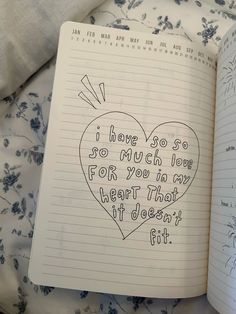 JAN FEB MAR APR MAY JUN JUL AUG SEP
i have so so
so much love
FOR you in my
heart That
it doesn't
fit.